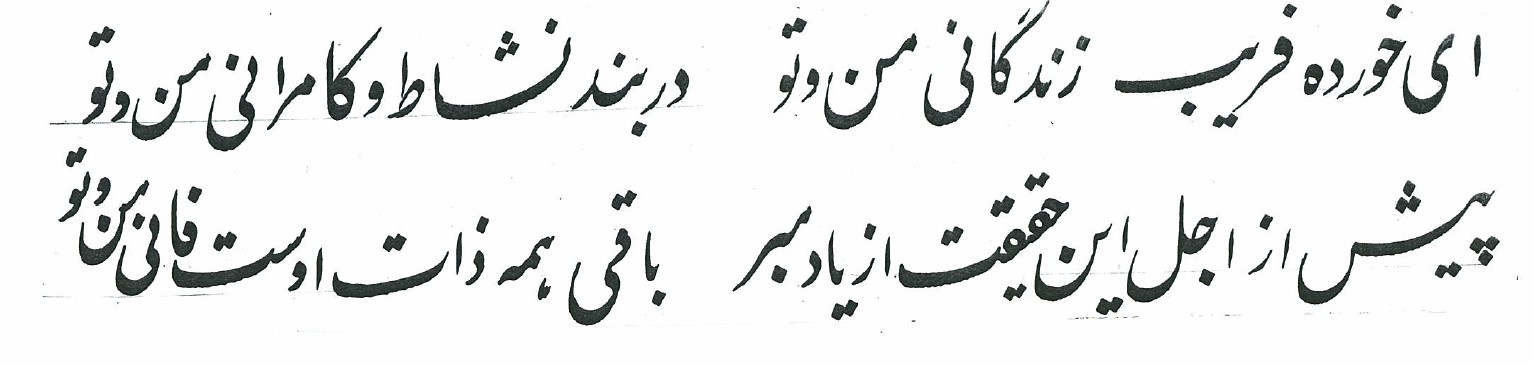 ای خورده فریب زندگانی من و تو در بند نشاط و کامرانی من و تو
پیش از اجل این حقیقت از یاد مبر باقی همه ذات اوست فانی من و تو